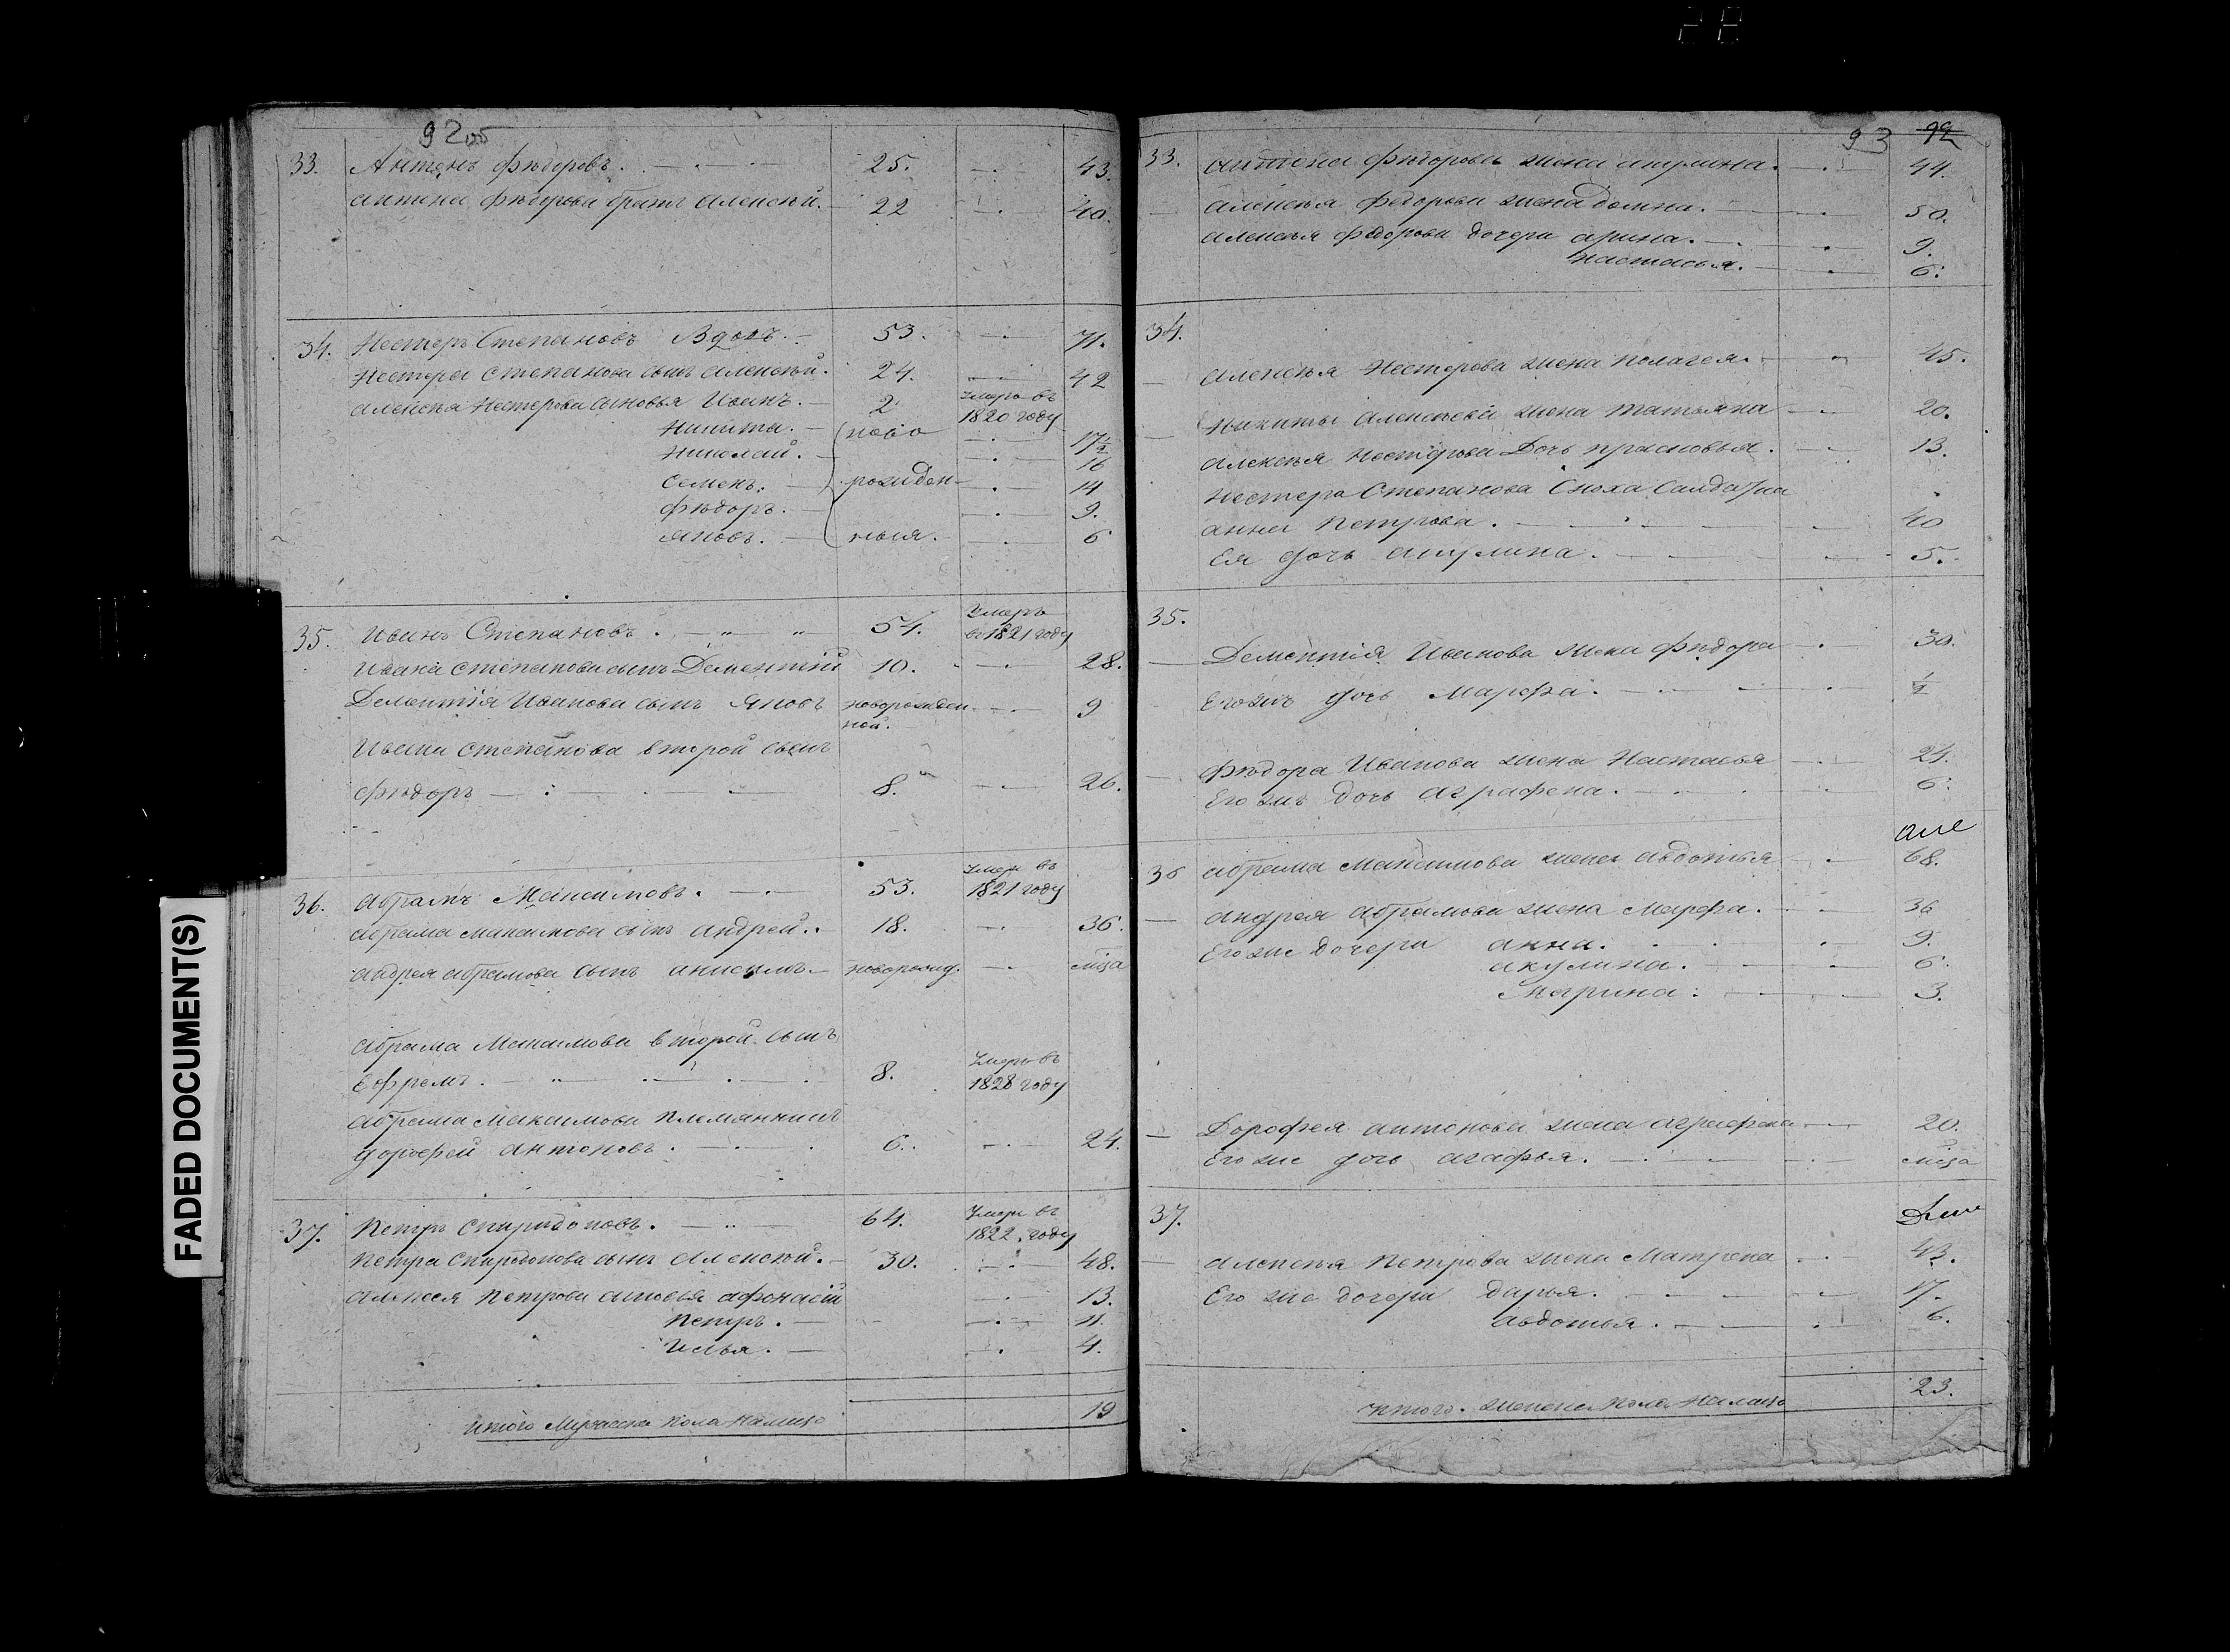 92об
33. Антонъ Фѣдоровъ. 25. 43.
Антона Фѣдорова братъ Алексѣй. 22 40.
34. Нестеръ Степановъ Вдовъ. 53. 71.
Нестера Степанова сынъ Алексѣй. 24. 42
Алексѣя Нестерова сыновья Иванъ. 2 Умеръ въ 1820 году
Никита. ново 17½
Николай. 16
Семенъ. рожден 14
Фѣдоръ. 9.
Яковъ. ныя. 6
35. Иванъ Степановъ. 54. Умеръ въ 1821 году
Ивана Степанова сынъ Дементій 10. 28.
Дементія Иванова сынъ Яковъ новорожден 9
ной.
Ивана Степанова второй сынъ
Фѣдоръ 8. 26.
36. Абрамъ Максимовъ. 53. Умеръ въ 1821 году
Абрама Максимова сынъ Андрей. 18. 36.
Андрея Абрамова сынъ новорожд.
Абрама Максимова второй сынъ
Ефремъ. 8. Умеръ въ 1828 году
Абрама Максимова племянникъ
Дорофей Антоновъ. 6. 24.
37. Петръ Спиридоновъ. 64. Умеръ въ 1822. году
Петра Спиридонова сынъ Алексѣй. 30. 48.
Алексея Петрова сыновья Афонасій 13.
Петръ. 11.
Илья. 4.
Итого Мужеска пола налицо 19
93 92
33. Антона Фѣдорова жена Акулина. 44.
Алексѣя Федорова жена Домна. 50.
Алексѣя Федорова дочери Арина. 9.
Настасья. 6.
34.
Алексѣя Нестерова жена Пелагея. 45.
Никиты Алексѣева жена Татьяна 20.
Алексѣя Нестерова Дочь Прасковья. 13.
Нестера Степанова Сноха Салдатка
Анна Петрова. 40
Ея дочь Акулина. 5.
35.
Дементія Иванова жена Фѣдора 30.
Его жъ дочь Марфа. ½
Фѣдора Иванова жена Настасья 24.
Его жъ дочь Аграфена. 6.
36 Абрама Максимова жена Авдотья 68.
Андрея Абрамова жена Марфа. 36
Его же Дочери Анна. 9.
Акулина. 6.
Марина. 3.
Дорофея Антонова жена Аграфена 20.
Его же дочь Агафья.
37.
Алексѣя Петрова жена Матрена 43.
Его же дочери Дарья. 17.
Авдотья. 6.
Итого. женска пола налицо 23.
FADED DOCUMENT(S)